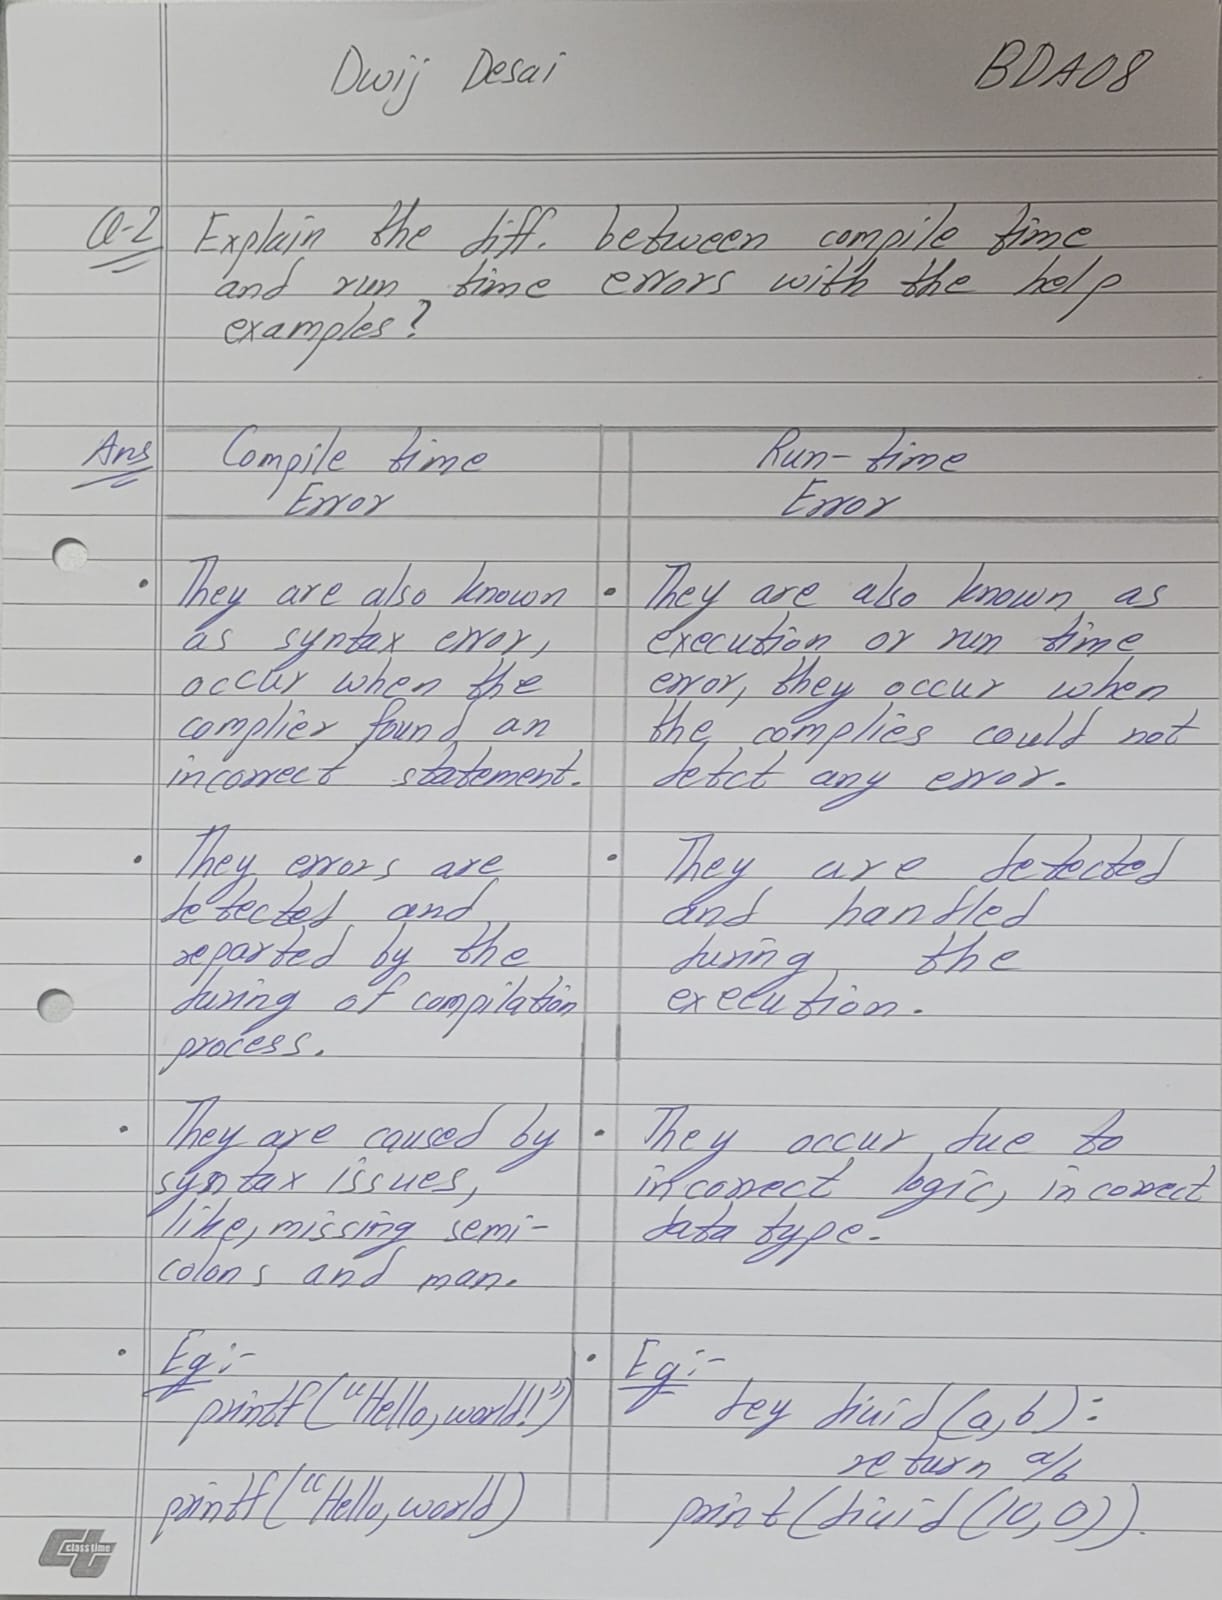 Dwij Desai BDA08
Q-2 Explain the diff. between compile time
and run time errors with the help
examples?
Ans Compile time
Error
Run-time
Error
• They are also known
as syntax error,
occur when the
complier found an
incorrect statement.
• They are also known as
execution or run time
error, they occur when
the complies could not
detct any error.
• They errors are
detected and
reported by the
during of compilation
process.
• They are detected
and handled
during the
execution.
• They are caused by
syntax issues,
like, missing semi-
colons and man.
• They occur due to
incorrect logic, incorrect
data type.
• Eg:-
printf("Hello, world!")
printf("Hello, world)
• Eg:-
dey divid(a,b):
return a/b
print(divid(10,0)).
classtime